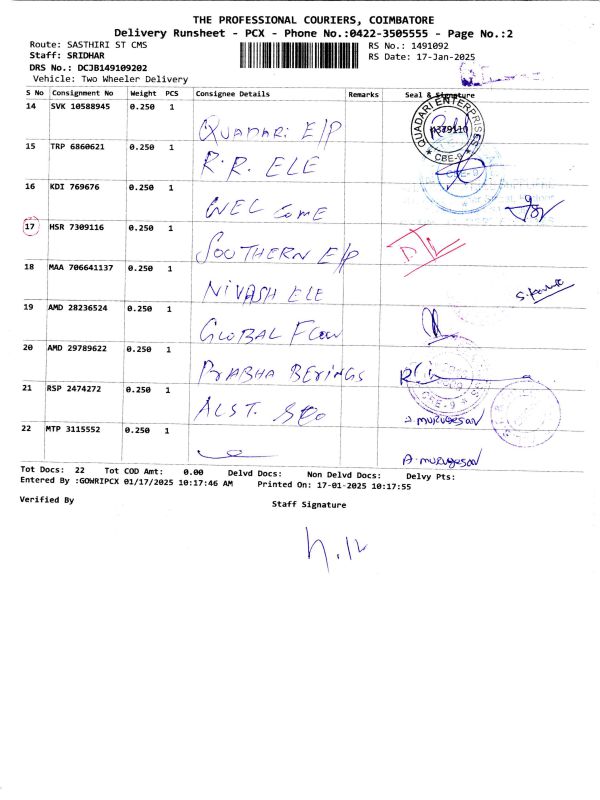 THE PROFESSIONAL COURIERS, COIMBATORE
Delivery Runsheet - PCX - Phone No.:0422-3505555 - Page No.:2
Route: SASTHIRI ST CMS RS No.: 1491092
Staff: SRIDHAR RS Date: 17-Jan-2025
DRS No.: DCJB149109202
Vehicle: Two Wheeler Delivery
S No Consignment No Weight PCS Consignee Details Remarks Seal & Signature
14 SVK 10588945 0.250 1 QUADARI E/P
QUADARI ENTERPRISES
CBE-9
15 TRP 6860621 0.250 1 R.R. ELE
CBE-9
16 KDI 769676 0.250 1 WELCOME
17 HSR 7309116 0.250 1 SOUTHERN E/P
18 MAA 706641137 0.250 1 NIVASH ELE
19 AMD 28236524 0.250 1 GLOBAL FLOW
20 AMD 29789622 0.250 1 PRABHA BERINGS
CBE-9
21 RSP 2474272 0.250 1 ALST. A. MURUGESAN
22 MTP 3115552 0.250 1 A. MURUGESAN
Tot Docs: 22 Tot COD Amt: 0.00 Delvd Docs: Non Delvd Docs: Delvy Pts:
Entered By :GOWRIPCX 01/17/2025 10:17:46 AM Printed On: 17-01-2025 10:17:55
Verified By Staff Signature